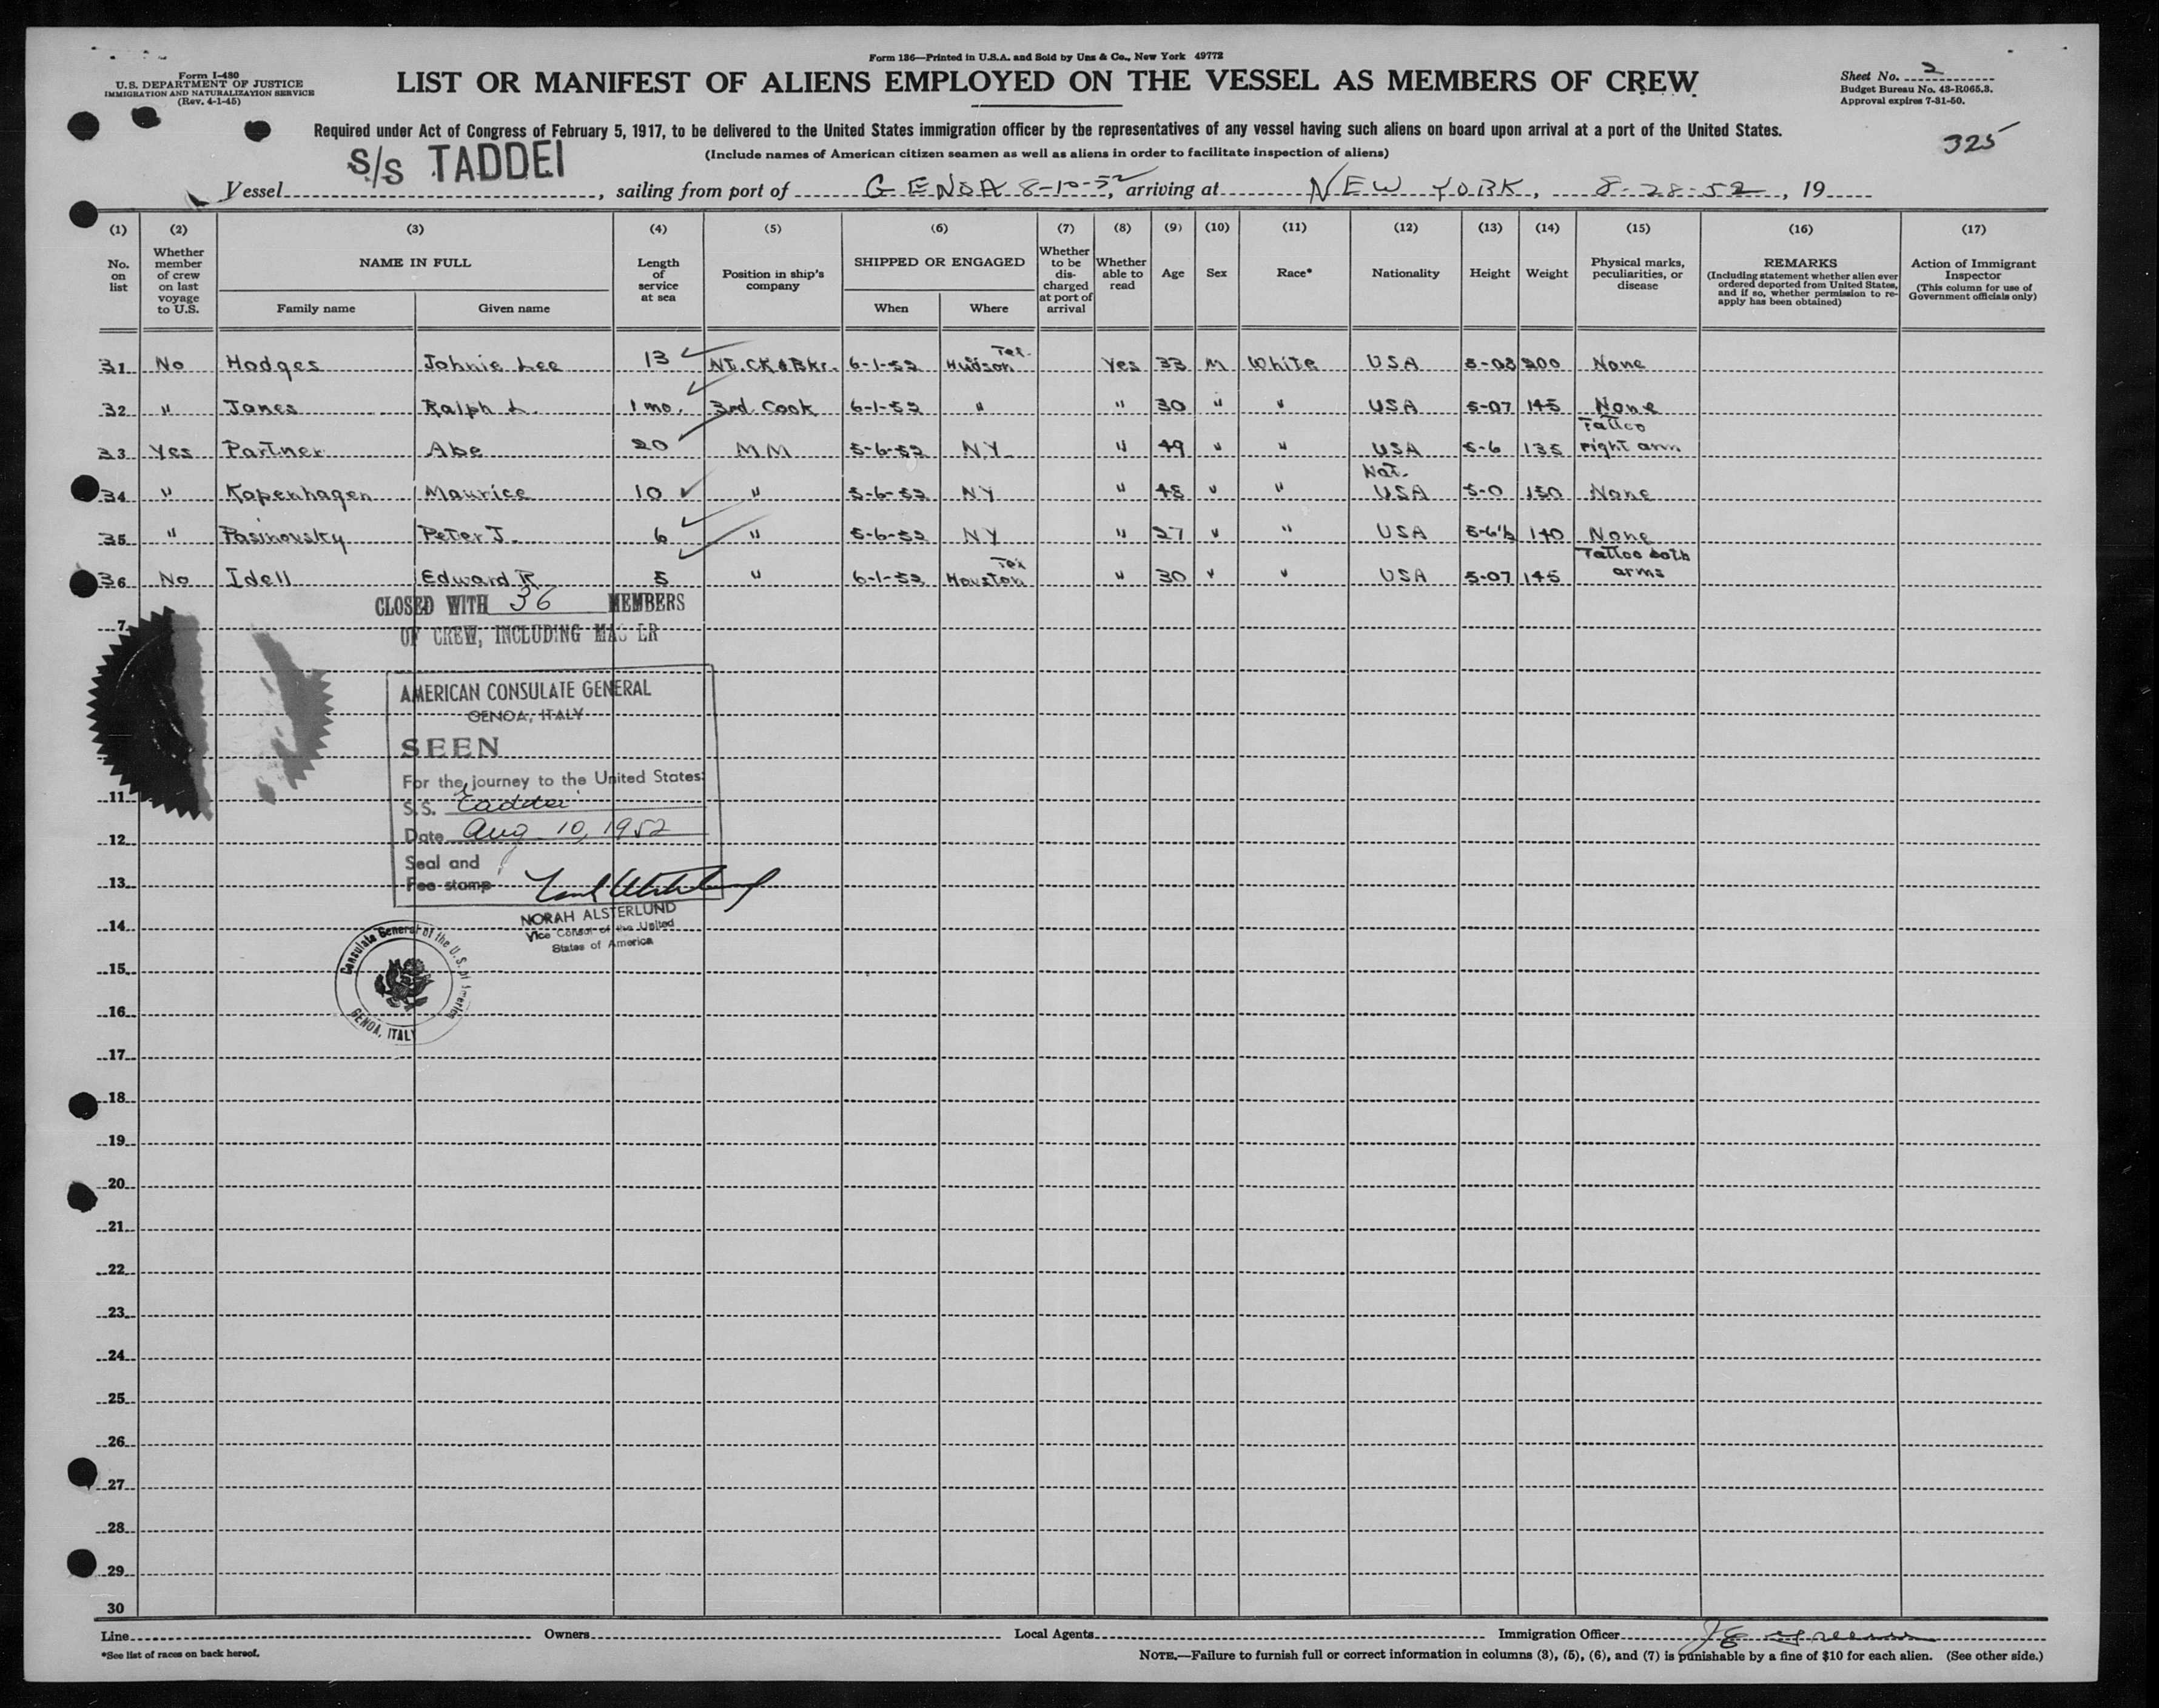 Form 136—Printed in U.S.A. and Sold by Unz & Co., New York 49772
Form I-480
U.S. DEPARTMENT OF JUSTICE
IMMIGRATION AND NATURALIZATION SERVICE
(Rev. 4-1-45)
LIST OR MANIFEST OF ALIENS EMPLOYED ON THE VESSEL AS MEMBERS OF CREW
Sheet No. 2
Budget Bureau No. 43-R065.3.
Approval expires 7-31-50.
Required under Act of Congress of February 5, 1917, to be delivered to the United States immigration officer by the representatives of any vessel having such aliens on board upon arrival at a port of the United States.
325
(Include names of American citizen seamen as well as aliens in order to facilitate inspection of aliens)
Vessel S/S TADDEI, sailing from port of GENOA 8-10-52, arriving at NEW YORK, 8-28-52, 19
(1) (2) (3) (4) (5) (6) (7) (8) (9) (10) (11) (12) (13) (14) (15) (16) (17)
No. on list
Whether member of crew on last voyage to U.S.
NAME IN FULL
Family name
Given name
Length of service at sea
Position in ship's company
SHIPPED OR ENGAGED
When
Where
Whether to be discharged at port of arrival
Whether able to read
Age
Sex
Race*
Nationality
Height
Weight
Physical marks, peculiarities, or disease
REMARKS
(Including statement whether alien ever ordered deported from United States, and if so, whether permission to reapply has been obtained)
Action of Immigrant Inspector
(This column for use of Government officials only)
31 No Hodges Johnie Lee 13 Nt. CK & Bkr. 6-1-52 Hudson Tex. Yes 33 M White USA 5-08 200 None
32 " Jones Ralph L. 1 mo. 3rd Cook 6-1-52 " " 30 " " USA 5-07 145 None
33 Yes Partner Abe 20 MM 5-6-52 NY " 49 " " USA 5-6 135 Tattoo right arm
34 " Kopenhagen Maurice 10 " 5-6-52 NY " 48 " " Nat. USA 5-0 150 None
35 " Pasinovsky Peter J. 6 " 5-6-52 NY " 27 " " USA 5-6½ 140 None
36 No Idell Edward R 5 " 6-1-52 Houston Tex " 30 " " USA 5-07 145 Tattoo both arms
CLOSED WITH 36 MEMBERS
OF CREW, INCLUDING MASTER
7
AMERICAN CONSULATE GENERAL
GENOA, ITALY
SEEN
For the journey to the United States
11
S.S. Taddei
Date Aug 10, 1952
12
Seal and
Fee stamp
13
NORAH ALSTERLUND
Vice Consul of the United
States of America
14
Consulate General of the U.S. of America
GENOA, ITALY
15
16
17
18
19
20
21
22
23
24
25
26
27
28
29
30
Line Owners Local Agents Immigration Officer
*See list of races on back hereof.
NOTE.—Failure to furnish full or correct information in columns (3), (5), (6), and (7) is punishable by a fine of $10 for each alien. (See other side.)